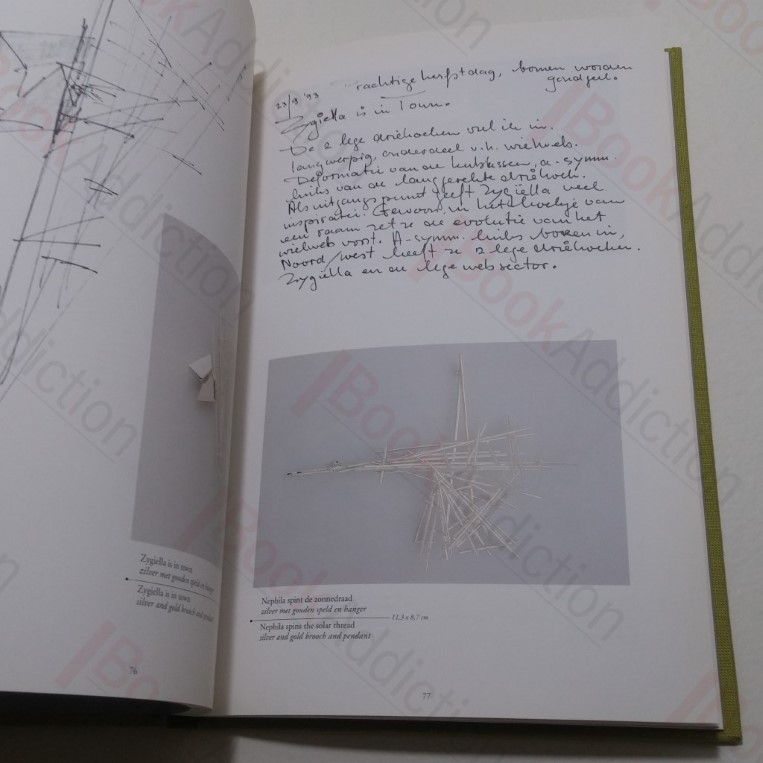 Zygiella is in town
zilver met gouden speld en
Zygiella is in town
silver and gold brooch and pendant
76
23/9 '93 prachtige herfstdag, bomen worden
goudgeel.
Zygiella is in Town.
De 2 lege driehoeken vul ik in.
langwerpig, onderdeel v.h. wielweb.
Deformatie van de a-symm.
links van de langgerekte driehoek.
Als uitgangspunt geeft Zygiella veel
inspiratie. Gewoon, in het hoekje van
een raam zet ze de evolutie van het
wielweb voort. A-symm. links boven in,
Noord/west heeft ze 2 lege driehoeken.
Zygiella en de lege websector.
Nephila spint de zonnedraad
zilver met gouden speld en hanger
11,3 x 8,7 cm.
Nephila spins the solar thread
silver and gold brooch and pendant
77
BookAddiction